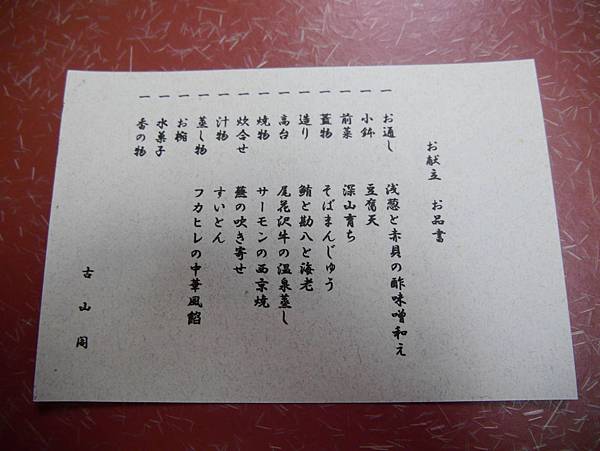 お献立 お品書
一 お通し 浅葱と赤貝の酢味噌和え
一 小鉢 豆腐天
一 前菜 深山育ち
一 蓋物 そばまんじゅう
一 造り 鮪と勘八と海老
一 高台 尾花沢牛の温泉蒸し
一 焼物 サーモンの西京焼
一 炊合せ 蕪の吹き寄せ
一 汁物 すいとん
一 蒸し物 フカヒレの中華風餡
一 お椀
一 水菓子
一 香の物
古山閣